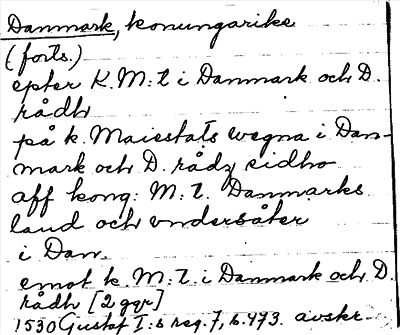 Danmark, konungarike
(forts.)
epter K. M:t i Danmark och D.
rådh
på k. Maiestats wegna i Dan-
mark och D. rådz sidho
aff kong: M:t. Danmarks
land och vndersåter
i Dan.
emot k. M:t. i Danmark och D.
rådh [2 ggr]
1530 Gustaf I:s reg. 7, s. 473. avskr.